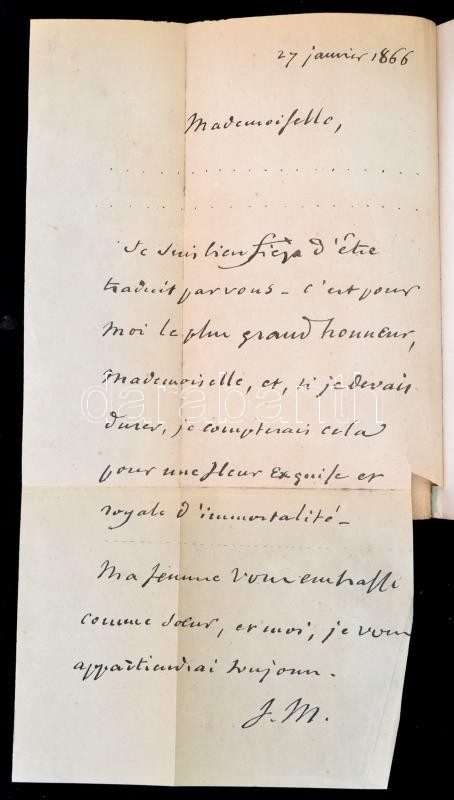 27 janvier 1866
Mademoiselle,
. . . . . . . . . . . . . . . . . . . . . . . .
. . . . . . . . . . . . . . . . . . . . . . . .
Je suis bien fier d'être
traduit par vous – c'est pour
moi le plus grand honneur,
Mademoiselle, et, si je devais
durer, je compterais cela
pour une fleur exquise et
royale d'immortalité –
Ma femme vous embrasse
comme sœur, et moi, je vous
appartiendrai toujours.
J. M.
darabanth